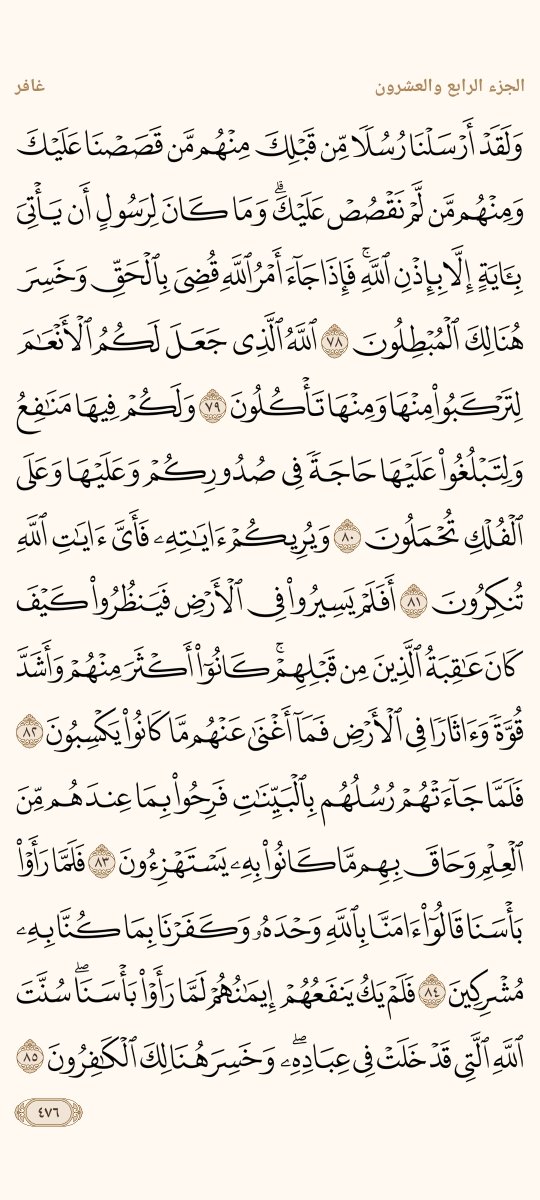 الجزء الرابع والعشرون
غافر
وَلَقَدْ أَرْسَلْنَا رُسُلًا مِّن قَبْلِكَ مِنْهُم مَّن قَصَصْنَا عَلَيْكَ
وَمِنْهُم مَّن لَّمْ نَقْصُصْ عَلَيْكَۗ وَمَا كَانَ لِرَسُولٍ أَن يَأْتِىَ
بِـَٔايَةٍ إِلَّا بِإِذْنِ ٱللَّهِۚ فَإِذَا جَآءَ أَمْرُ ٱللَّهِ قُضِىَ بِٱلْحَقِّ وَخَسِرَ
هُنَالِكَ ٱلْمُبْطِلُونَ ٧٨ ٱللَّهُ ٱلَّذِى جَعَلَ لَكُمُ ٱلْأَنْعَٰمَ
لِتَرْكَبُوا۟ مِنْهَا وَمِنْهَا تَأْكُلُونَ ٧٩ وَلَكُمْ فِيهَا مَنَٰفِعُ
وَلِتَبْلُغُوا۟ عَلَيْهَا حَاجَةً فِى صُدُورِكُمْ وَعَلَيْهَا وَعَلَى
ٱلْفُلْكِ تُحْمَلُونَ ٨٠ وَيُرِيكُمْ ءَايَٰتِهِۦ فَأَىَّ ءَايَٰتِ ٱللَّهِ
تُنكِرُونَ ٨١ أَفَلَمْ يَسِيرُوا۟ فِى ٱلْأَرْضِ فَيَنظُرُوا۟ كَيْفَ
كَانَ عَٰقِبَةُ ٱلَّذِينَ مِن قَبْلِهِمْۚ كَانُوٓا۟ أَكْثَرَ مِنْهُمْ وَأَشَدَّ
قُوَّةً وَءَاثَارًا فِى ٱلْأَرْضِ فَمَآ أَغْنَىٰ عَنْهُم مَّا كَانُوا۟ يَكْسِبُونَ ٨٢
فَلَمَّا جَآءَتْهُمْ رُسُلُهُم بِٱلْبَيِّنَٰتِ فَرِحُوا۟ بِمَا عِندَهُم مِّنَ
ٱلْعِلْمِ وَحَاقَ بِهِم مَّا كَانُوا۟ بِهِۦ يَسْتَهْزِءُونَ ٨٣ فَلَمَّا رَأَوْا۟
بَأْسَنَا قَالُوٓا۟ ءَامَنَّا بِٱللَّهِ وَحْدَهُۥ وَكَفَرْنَا بِمَا كُنَّا بِهِۦ
مُشْرِكِينَ ٨٤ فَلَمْ يَكُ يَنفَعُهُمْ إِيمَٰنُهُمْ لَمَّا رَأَوْا۟ بَأْسَنَاۖ سُنَّتَ
ٱللَّهِ ٱلَّتِى قَدْ خَلَتْ فِى عِبَادِهِۦۖ وَخَسِرَ هُنَالِكَ ٱلْكَٰفِرُونَ ٨٥
٤٧٦